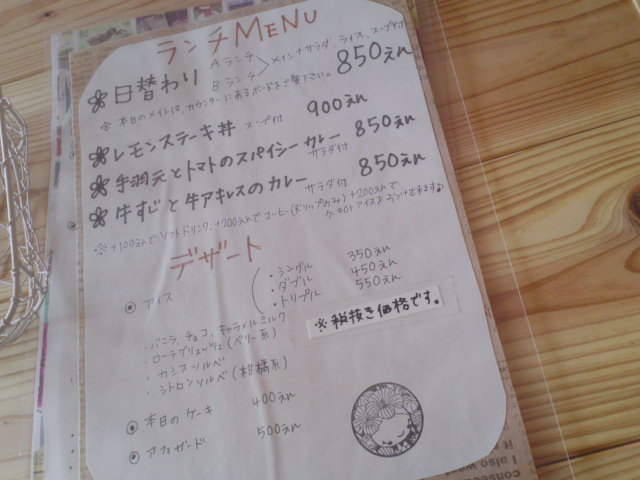 ランチMENU
日替わり Aランチ Bランチ > メイン+サラダ、ライス、スープ付 850えん
※ 本日のメインは、カウンターにあるボードをご覧下さい。
レモンステーキ丼 スープ付 900えん
手羽元とトマトのスパイシーカレー サラダ付 850えん
牛すじと牛アキレスのカレー サラダ付 850えん
※+100えんでソフトドリンク、+200えんでコーヒー(ドリップのみ)+200えんで
ケーキorアイスをおつけ出来ます♪
デザート
アイス
・シングル 350えん
・ダブル 450えん
・トリプル 550えん
※税抜き価格です。
・バニラ、チョコ、キャラメルミルク
・ローテグリュッツェ(ベリー系)
・カシスソルベ
・シトロンソルベ(柑橘系)
本日のケーキ 400えん
アフォガード 500えん
I also